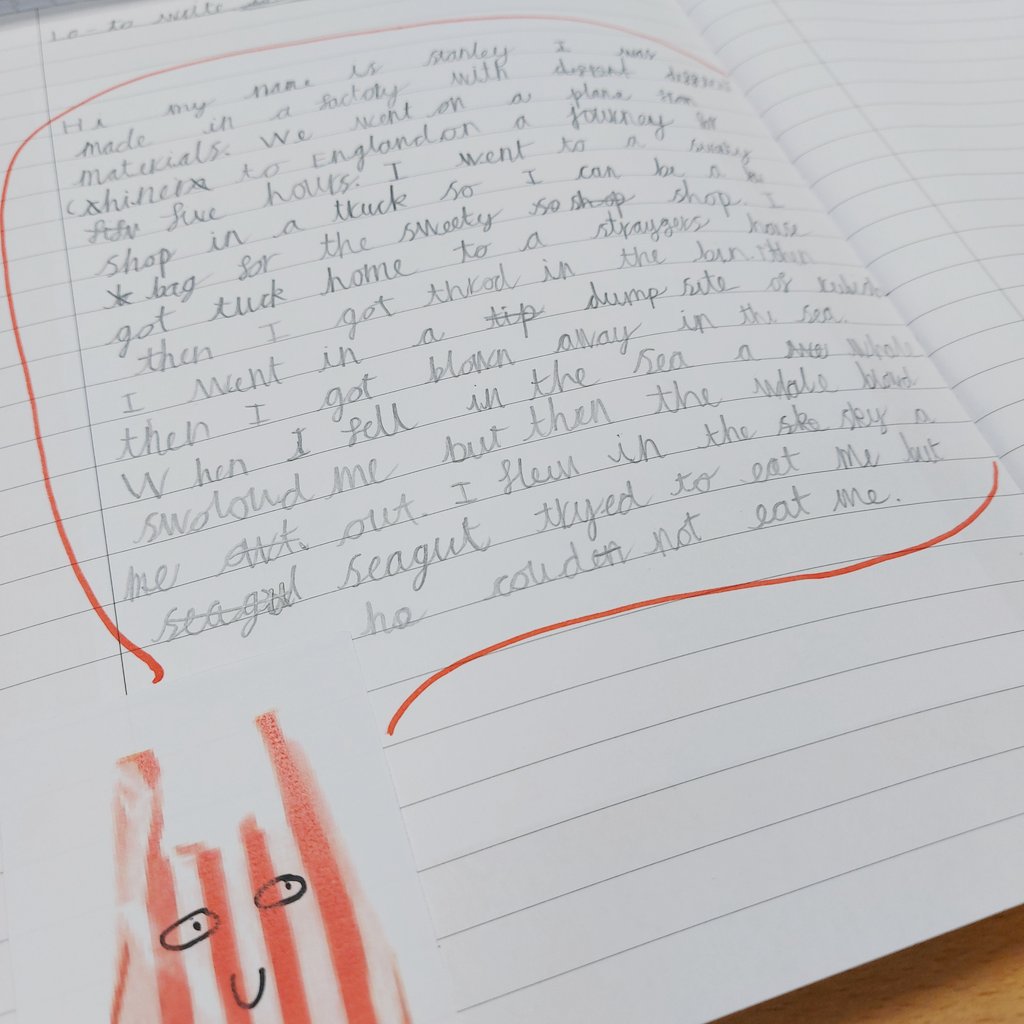 Lo - to write
Hi my name is stanley I was
made in a factory with
materials. We went on a plane from
chiner to England on a journey for
five hours. I went to a sweety
shop in a truck so I can be a
bag for the sweety shop. I
got tuck home to a strayggers house
then I got throd in the bin. then
I went in a tip dump site of
then I got blown away in the sea.
When I fell in the sea a whale
swoloud me but then the whale blowd
me out. I flew in the sky a
seagul seagut tryed to eat me but
he couden not eat me.